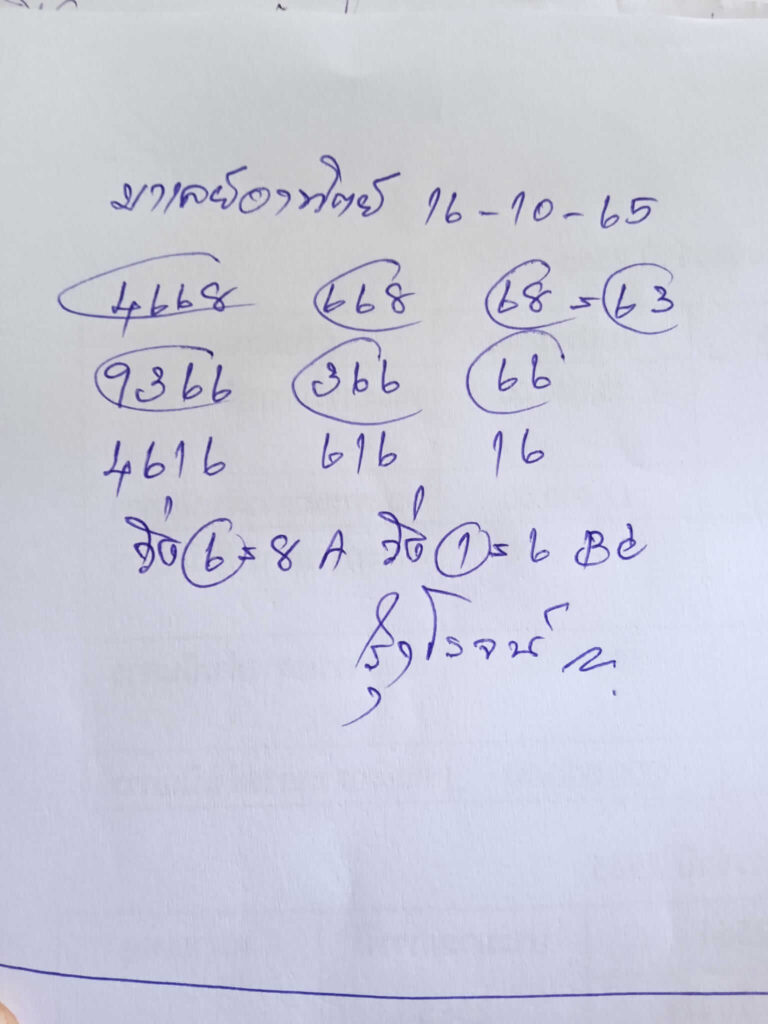 มาเลย์อาทิตย์ 16-10-65
4668 668 68 = 63
9366 366 66
4616 616 16
วิ่ง 6 = 8 A วิ่ง 1 = 6 BC
รุ่งโรจน์